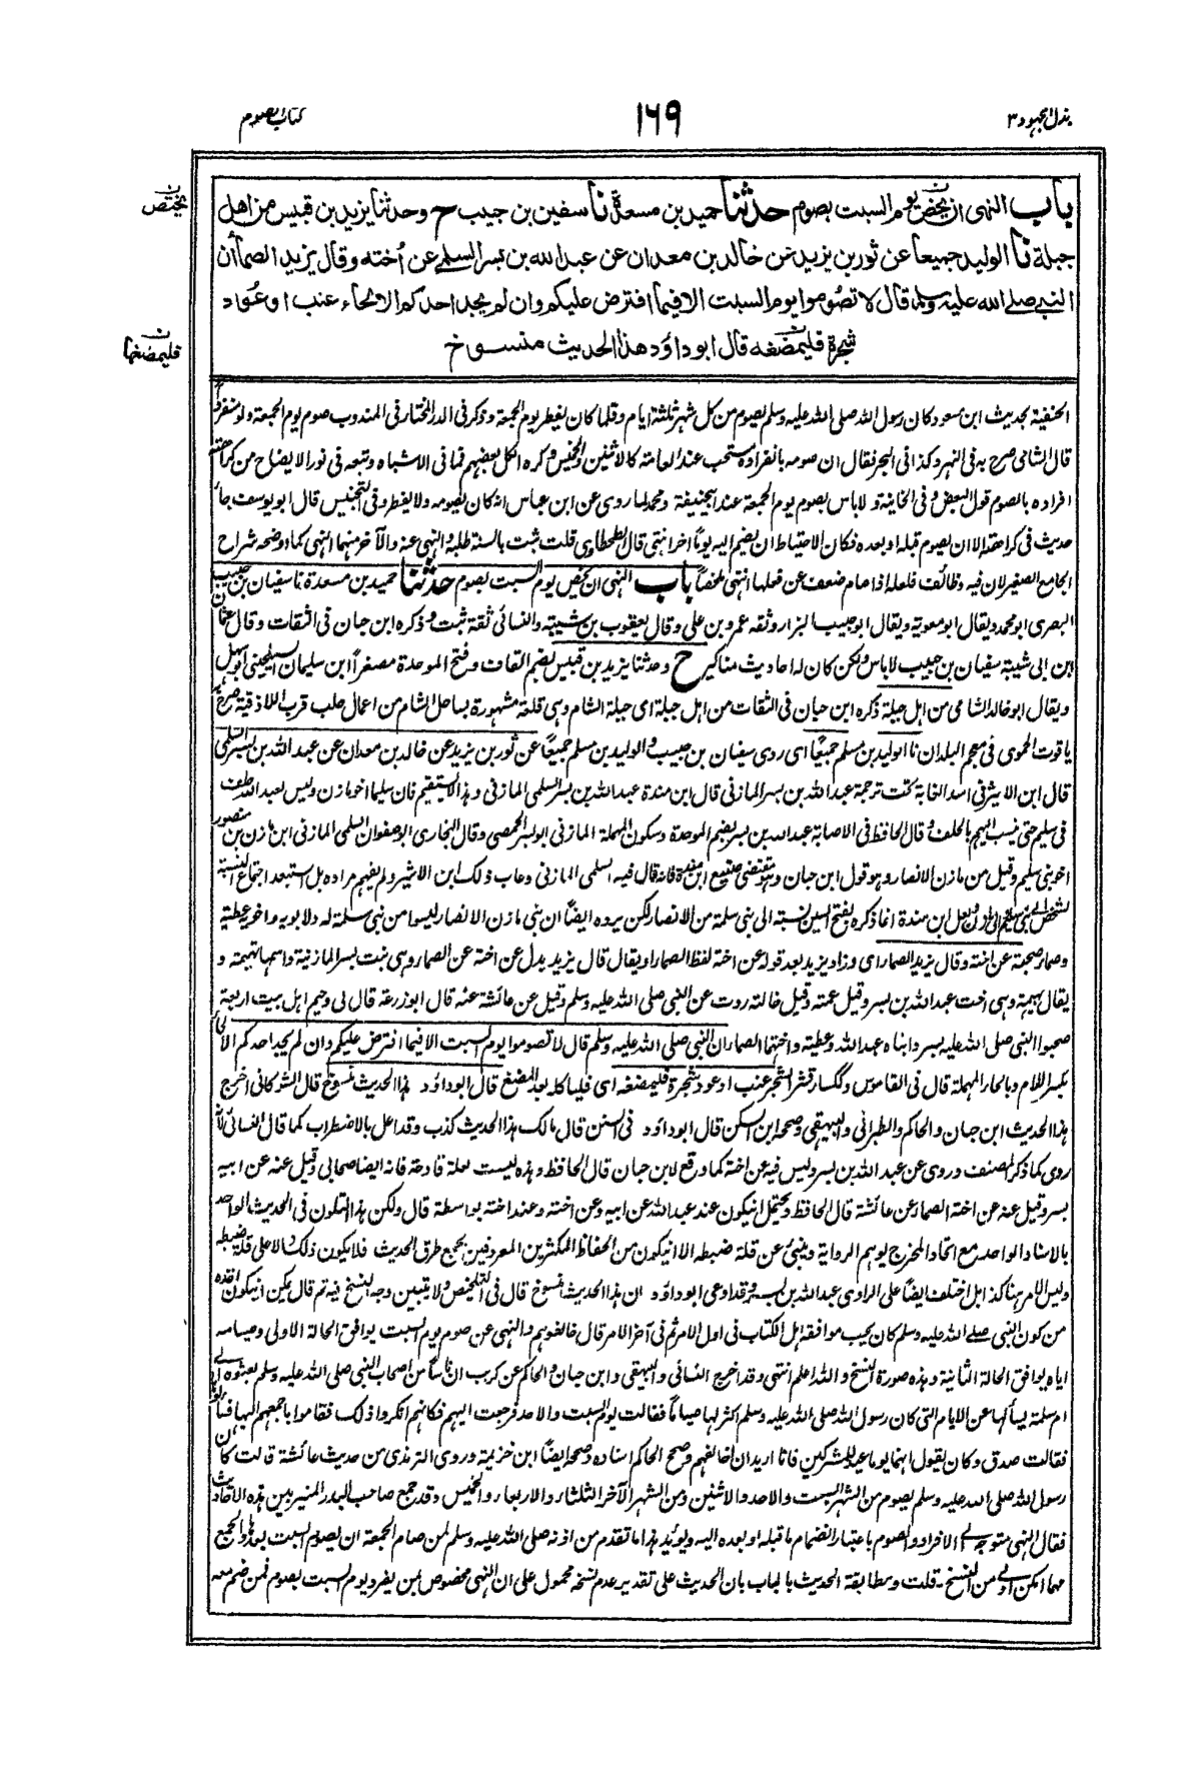 بذل المجهود ٣
١٦٩
كتاب الصوم
باب النهى ان يخص يوم السبت بصوم حدثنا حميد بن مسعدة نا سفين بن حبيب ح وحدثنا يزيد بن قبيس من اهل
يختص
جبلة نا الوليد جميعا عن ثور بن يزيد عن خالد بن معدان عن عبد الله بن بسر السلمى عن أخته وقال يزيد الصماء أن
النبى صلى الله عليه وسلم قال لا تصوموا يوم السبت الا فيما افترض عليكم وان لم يجد احدكم الا لحاء عنب او عود
شجرة فليمضغه قال ابو داؤد هذا الحديث منسوخ
فليمضغها
الحنفية بحديث ابن مسعود كان رسول الله صلى الله عليه وسلم يصوم من كل شهر ثلثة ايام وقلما كان يفطر يوم الجمعة وذكر فى الدر المختار فى المندوب صوم يوم الجمعة ولو منفردا
قال الشامى صرح به فى النهر وكذا فى البحر فقال ان صومه بانفراده مستحب عند العامة كالاثنين والخميس وكره الكل بعضهم فما فى الاشباه وتبعه فى نور الايضاح من كراهة
افراده بالصوم قول البعض وفى الخانية ولا باس بصوم يوم الجمعة عند ابيحنيفة ومحمد لما روى عن ابن عباس انه كان يصومه ولا يفطر وفى التجنيس قال ابو يوسف جاء
حديث فى كراهته الا ان يصوم قبله او بعده فكان الاحتياط ان يضم اليه يوما اخر انتهى قال الطحطاوى قلت ثبت بالسنة طلبه والنهى عنه والآخر منهما النهى كما اوضحه شراح
الجامع الصغير لان فيه وظائف فلعله اذا صام ضعف عن فعلها انتهى ملخصا باب النهى ان يخص يوم السبت بصوم حدثنا حميد بن مسعدة نا سفيان بن حبيب
البصرى ابو محمد ويقال ابو معوية ويقال ابو حبيب البزار وثقه عمرو بن على وقال يعقوب بن شيبة والنسائى ثقة ثبت وذكره ابن حبان فى الثقات وقال عثمان
ابن ابى شيبة سفيان بن حبيب لا باس ولكن كان له احاديث مناكير ح وحدثنا يزيد بن قبيس بضم القاف وفتح الموحدة مصغرا ابن سليمان السيلحينى ابو سهل
ويقال ابو خالد الشامى من اهل جبلة ذكره ابن حبان فى الثقات من اهل جبلة اى جبلة الشام وهى قلعة مشهورة بساحل الشام من اعمال حلب قرب اللاذقية صرح به
ياقوت الحموى فى معجم البلدان نا الوليد بن مسلم جميعا اى روى سفيان بن حبيب والوليد بن مسلم جميعا عن ثور بن يزيد عن خالد بن معدان عن عبد الله بن بسر السلمى
قال ابن الاثير فى اسد الغابة تحت ترجمة عبد الله بن بسر المازنى قال ابن مندة عبد الله بن بسر السلمى المازنى وهذا لا يستقيم فان سليما اخو مازن وليس لعبد الله حلف
فى سليم حتى ينسب اليهم بالحلف وقال الحافظ فى الاصابة عبد الله بن بسر بضم الموحدة وسكون المهملة المازنى ابو بسر الحمصى وقال البخارى ابو صفوان السلمى المازنى ابن مازن بن منصور
اخو بنى سليم وقيل من مازن الانصار وهو قول ابن حبان وهو مقتضى صنيع ابن مندة فانه قال فيه السلمى المازنى وعاب ذلك ابن الاثير ولم يفهم مراده بل استبعد اجتماع النسبة
لشخص الى بنى سليم الى مازن ولعل ابن مندة انما ذكره بفتح السين نسبة الى بنى سلمة من الانصار لكن يرده ايضا ان بنى مازن الانصار ليسوا من بنى سلمة له ولابويه واخويه عطية
وصماء صحبة عن اخته وقال يزيد الصماء اى وزاد يزيد بعد قوله عن اخته لفظ الصماء او يقال قال يزيد بدل عن اخته عن الصماء وهى بنت بسر المازنية واسمها بهيمة و
يقال بهيمة وهى اخت عبد الله بن بسر وقيل عمته وقيل خالته روت عن النبى صلى الله عليه وسلم وقيل عن عائشة عنه قال ابو زرعة قال لى دحيم اهل بيت اربعة
صحبوا النبى صلى الله عليه بسر وابناه عبد الله وعطية واختهما الصماء ان النبى صلى الله عليه وسلم قال لا تصوموا يوم السبت الا فيما افترض عليكم وان لم يجد احدكم الا لحاء
بكسر اللام وبالحاء المهملة قال فى القاموس وككساء قشر الشجر عنب او عود شجرة فليمضغه اى فلياكله بعد المضغ قال ابو داؤد هذا الحديث منسوخ قال الشوكانى اخرج
هذا الحديث ابن حبان والحاكم والطبرانى والبيهقى وصححه ابن السكن قال ابو داؤد فى السنن قال مالك هذا الحديث كذب وقد اعل بالاضطراب كما قال النسائى لانه
روى كما ذكر المصنف وروى عن عبد الله بن بسر وليس فيه عن اخته كما وقع لابن حبان قال الحافظ وهذه ليست بعلة قادحة فانه ايضا صحابى وقيل عنه عن ابيه
بسر وقيل عنه عن اخته الصماء عن عائشة قال الحافظ ويحتمل ان يكون عند عبد الله عن ابيه وعن اخته وعند اخته بواسطة قال ولكن هذا التلون فى الحديث الواحد
بالاسناد الواحد مع اتحاد المخرج يوهم الرواية وينبئ عن قلة ضبطه الا ان يكون من الحفاظ المكثرين المعروفين بجمع طرق الحديث فلا يكون ذلك دالا على قلة ضبطه
وليس الامر هنا كذا بل اختلف ايضا على الراوى عبد الله بن بسر وقد ادعى ابو داؤد ان هذا الحديث منسوخ قال فى التلخيص ولا يتبين وجه النسخ فيه ثم قال يمكن ان يكون اخذه
من كون النبى صلى الله عليه وسلم كان يحب موافقة اهل الكتاب فى اول الامر ثم فى آخر الامر قال خالفوهم والنهى عن صوم يوم السبت يوافق الحالة الاولى وصيامه
اياه يوافق الحالة الثانية وهذه صورة النسخ والله اعلم انتهى وقد اخرج النسائى والبيهقى وابن حبان والحاكم عن كريب ان ناسا من اصحاب النبى صلى الله عليه وسلم بعثوه الى
ام سلمة يسألها عن الايام التى كان رسول الله صلى الله عليه وسلم اكثر لها صياما فقالت يوم السبت والاحد فرجعت اليهم فكانهم انكروا ذلك فقاموا باجمعهم اليها فسألوها
فقالت صدق وكان يقول انهما يوما عيد للمشركين فانا اريد ان اخالفهم وصحح الحاكم اسناده وصححه ايضا ابن خزيمة وروى الترمذى من حديث عائشة قالت كان
رسول الله صلى الله عليه وسلم يصوم من الشهر السبت والاحد والاثنين ومن الشهر الآخر الثلثاء والاربعاء والخميس وقد جمع صاحب البدر المنير بين هذه الاحاديث
فقال النهى متوجه الى الافراد والصوم باعتبار انضمام ما قبله او بعده اليه ويؤيد هذا ما تقدم من اذنه صلى الله عليه وسلم لمن صام الجمعة ان يصوم السبت بعدها والجمع
مهما امكن اولى من النسخ - قلت ومطابقة الحديث بالباب بان الحديث على تقدير عدم نسخه محمول على ان النهى مخصوص لمن يفرد يوم السبت بصوم فمن ضم معه